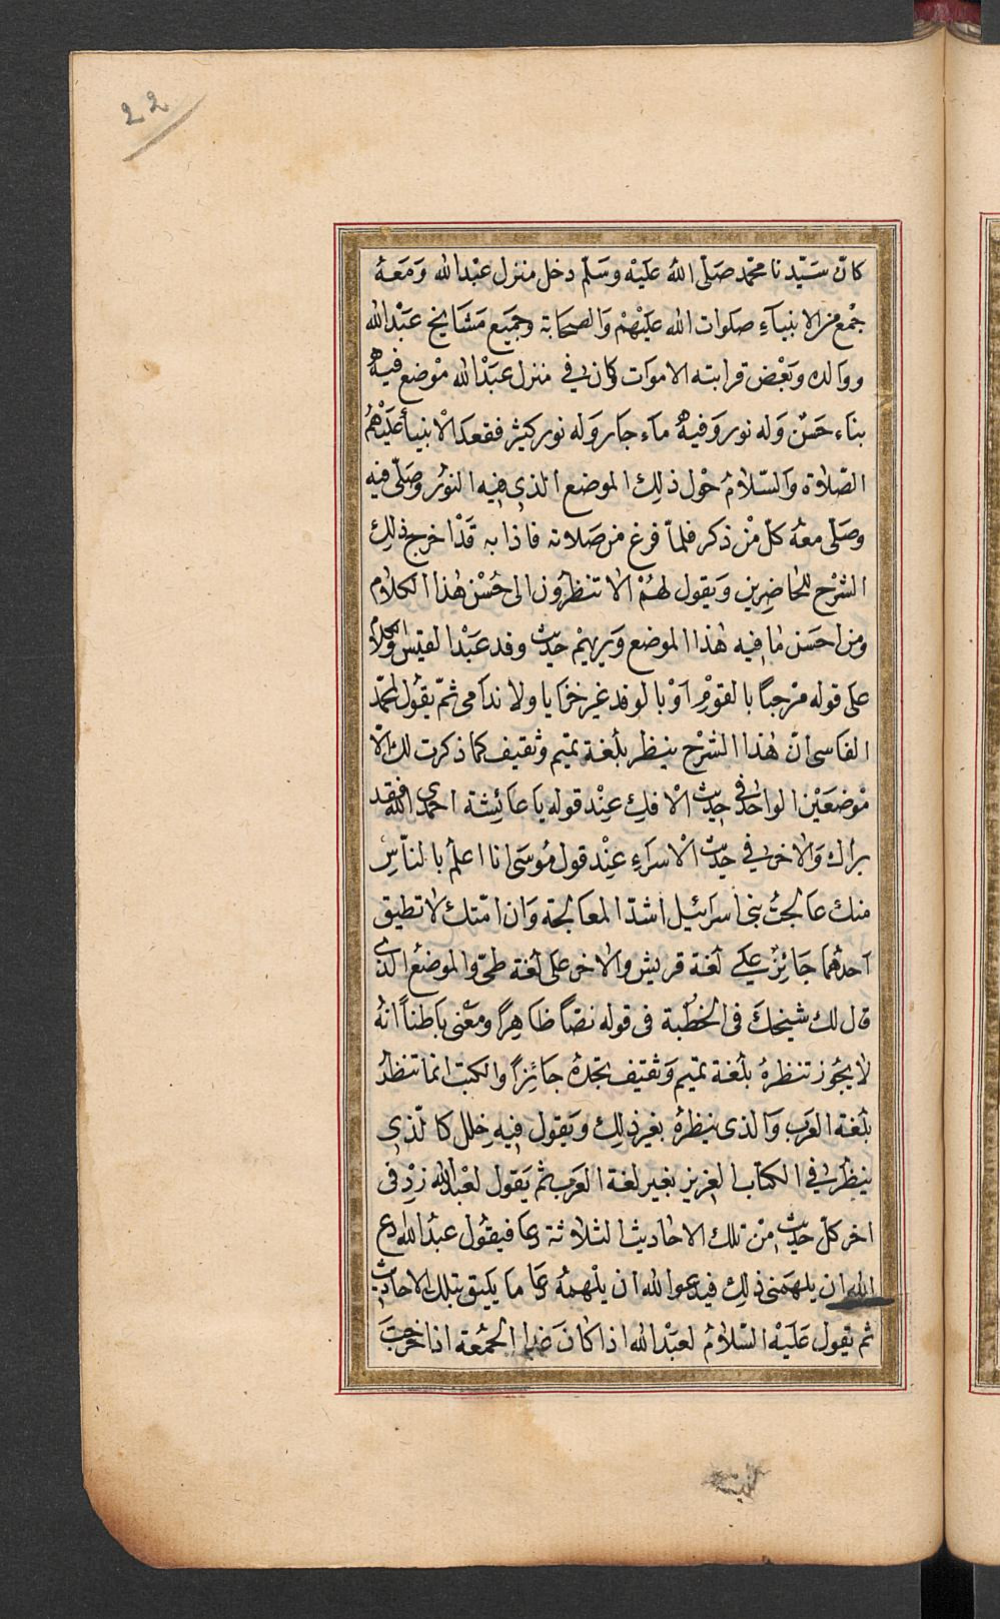 22
كانّ سَيّدنا محمّد صَلّى اللهُ عَلَيْه وسَلّم دخل منزل عبْدالله وَمَعَهُ
جمْع من الانبيآءِ صلوات الله عليْهمْ وَالصحَابة وجميَع مَشَايخ عَبْدالله
ووالده وبَعْض قرابته الاموَات وكان في منزل عبَدْالله موْضع فيهِ
بناء حَسَنٌ وَله نور وَفيهُ مآء جار وَله نور كثيرْ فقعدَ الْانبيآ عَلَيْهمُ
الصّلاة وَالسّلامُ حْول ذلِك الموضع الذي فيه النوُر وصَلّى فيه
وصَلّى معَهُ كلّ منْ ذكر فلمّا فرغ من صَلاته فاذا به قَدْ اخرج ذلِكَ
الشرْح للحَاضِرين وَيقول لهمُ الا تنظرُون الى حُسْن هٰذا الكلام
ومن احسَن ما فيه هٰذا الموضع وَيريهمْ حديث وفد عَبْد القيس وكلامُ
على قوله مرْحباً بالقوْمِ اوْ بالوفد غير خزايا ولا ندامى ثمّ يقوُل لمحمّد
الفاسى انّ هٰذا الشرْح ينظر بلغة تميم وثقيف كما ذكرت لك الّا
موْضعَيْن الواحد في حديث الْافكِ عِنْد قوله يا عَائِشة احمدي الله فقد
براك وَالاخر في حديث الْاسرآءِ عِنْد قول موُسَى انا اعلمُ بالناّسِ
منك عالجتُ بنى اسرائيل اشدّ المعالجة وَان امّتك لا تطيق
احدهُما جَائِز على لغة قريش والاخر على لغة طىّ والموضع الذى
قال لك شيخكَ فى الخطُبة فى قوله نصّاً ظاهِراً ومَعْنى باطناً انهُ
لا يجوُز تنظرهُ بلغة تميم وَثقيف تجدهُ جائِزاً والكتب انما تنظرُ
بلغة العرَب وَالذى ينظرهُ بغير ذلِك وَيقول فيهِ خلل كالّذِى
ينظر في الكتاب العزيز بغير لغة العَرَب ثم يَقول لعبْدالله زِدْ فى
اخر كلّ حديث منْ تلك الاحاديث الثلاثة دعا فيقوُل عبْدَالله ادع
الله ان يلهمَنى ذلِك فيدعوا الله ان يلْهمهُ دعا ما يليق بتلك الاحاديث
ثم يَقول عَليَه السّلامُ لعبْدالله اذا كانَ غدا الجمُعة اذا خرجتَ